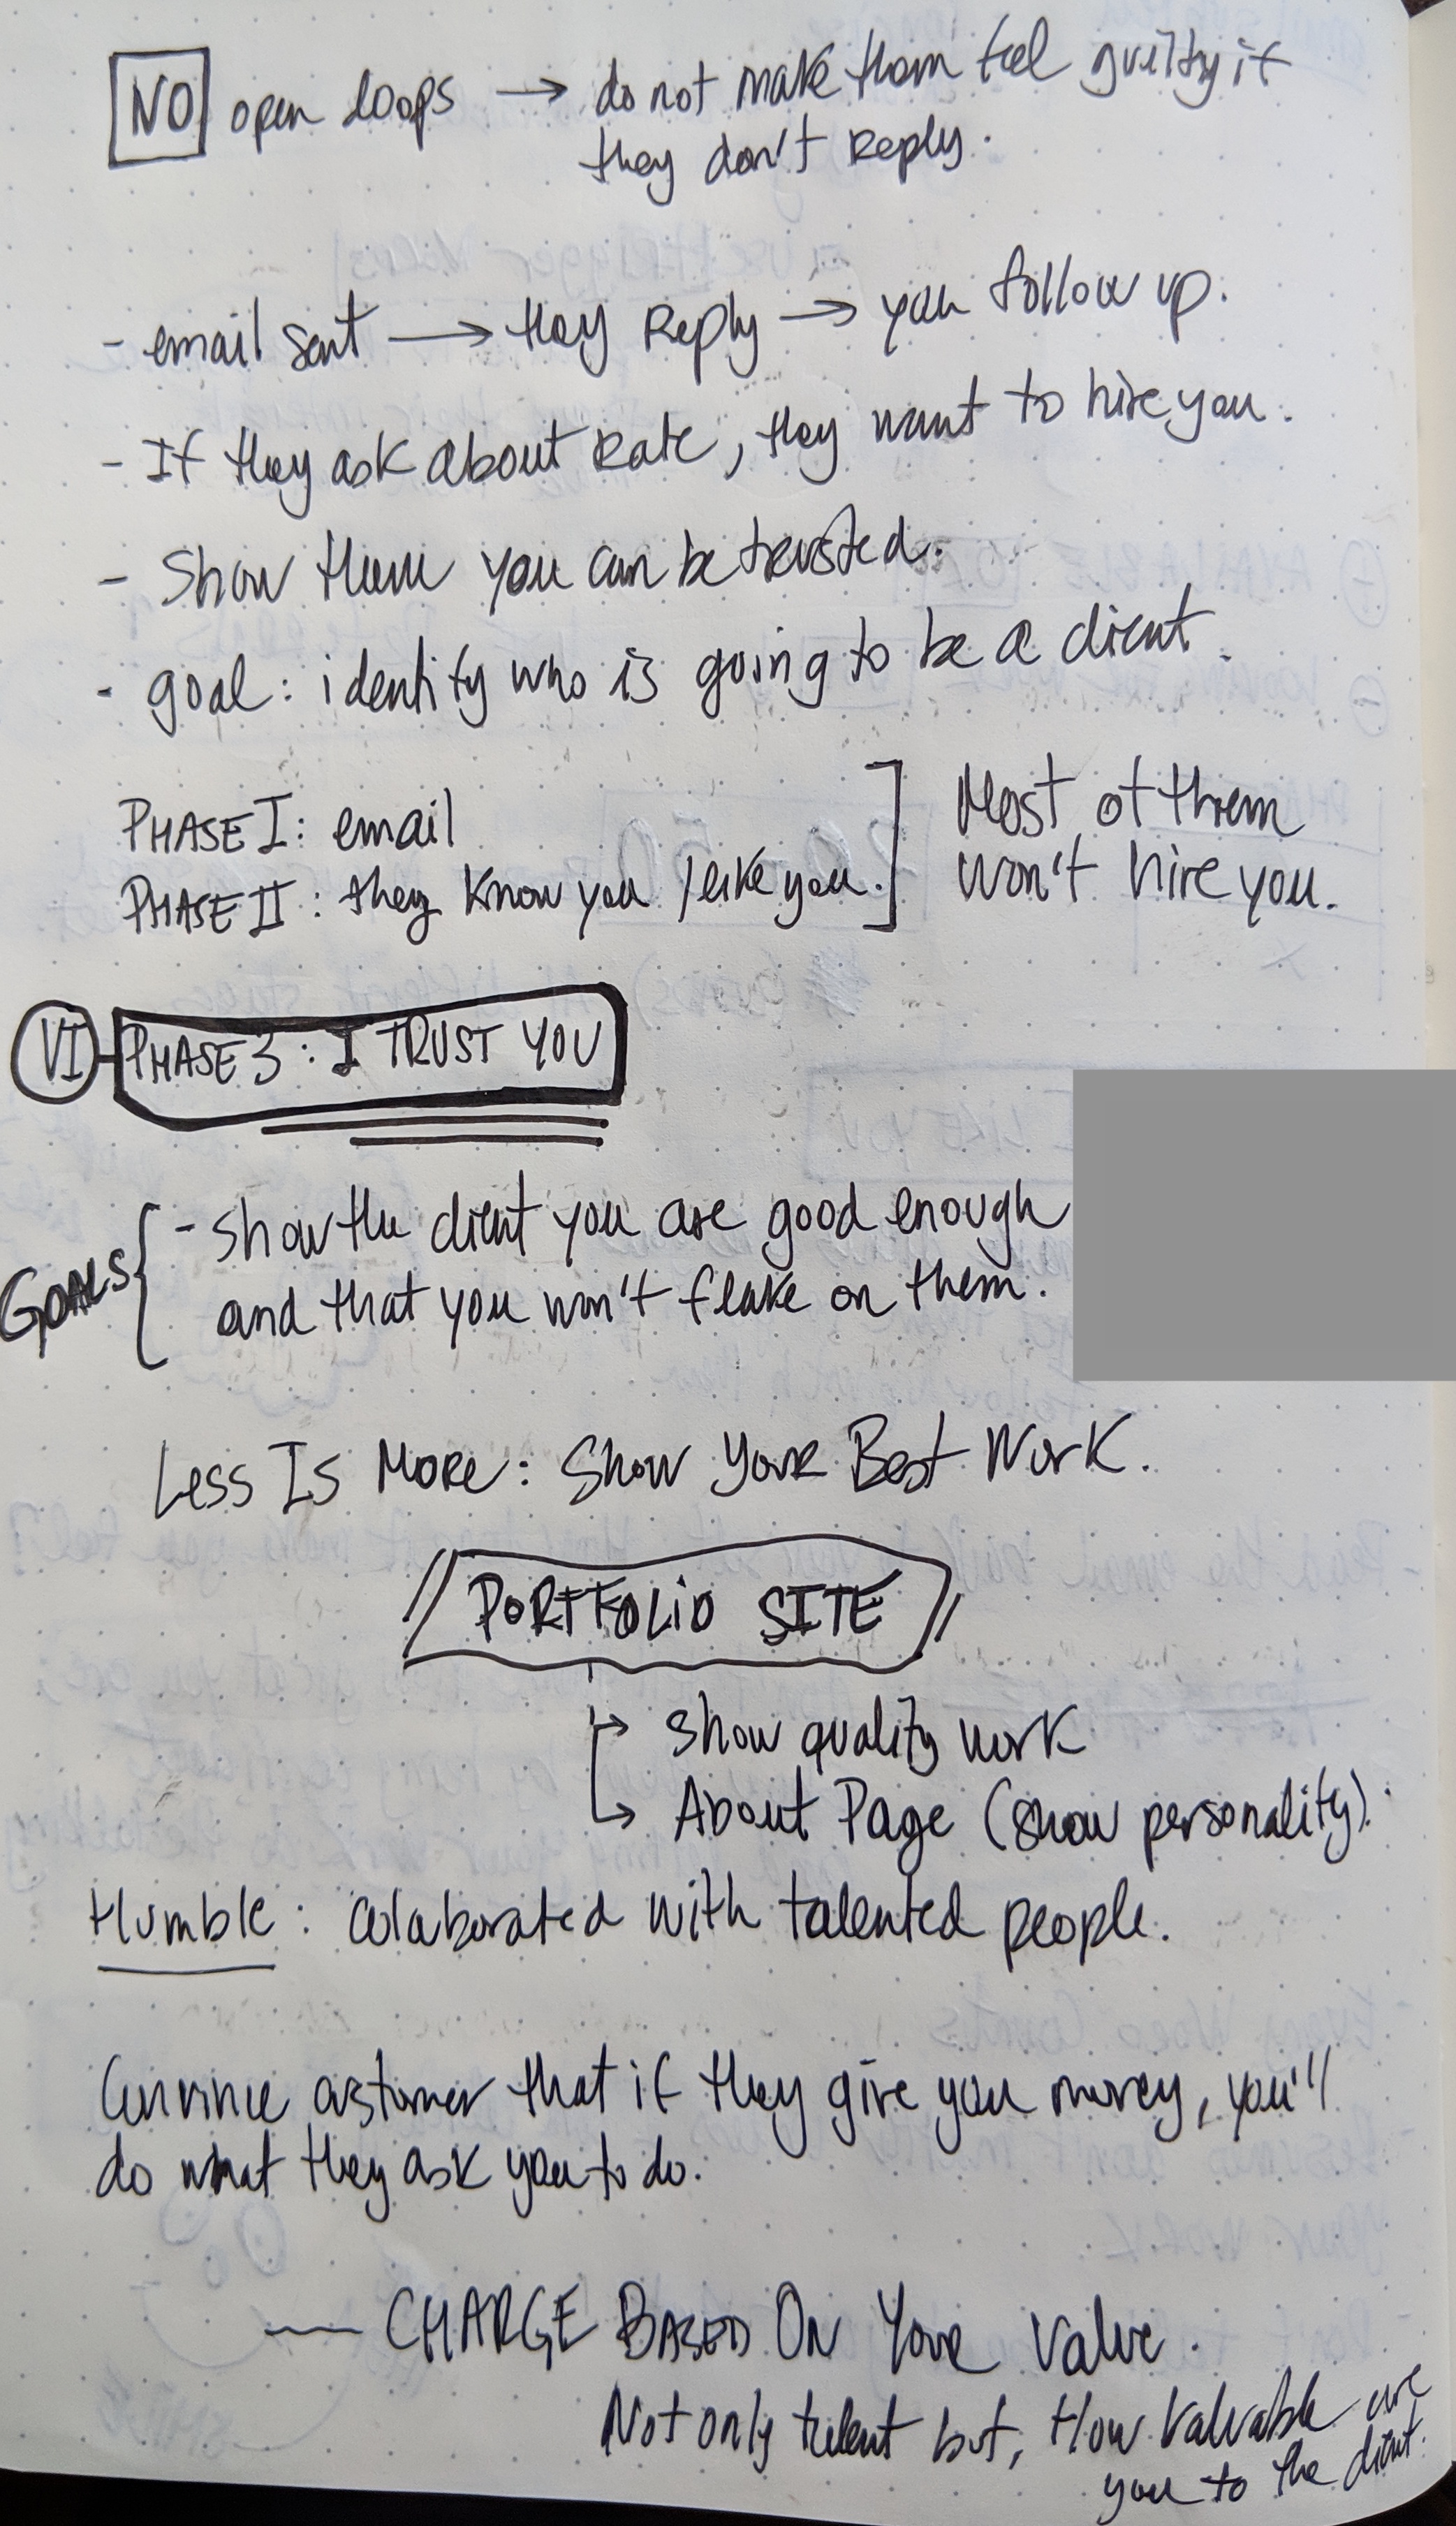 NO open loops → do not make them feel guilty if
they don't reply.
- email sent → they reply → you follow up.
- If they ask about rate, they want to hire you.
- Show them you can be trusted.
- goal: identify who is going to be a client.
PHASE I: email
PHASE II: they know you / like you.] Most of them
won't hire you.
VI PHASE 3: I TRUST YOU
GOALS { - show the client you are good enough
and that you won't flake on them.
Less Is More: Show Your Best Work.
// PORTFOLIO SITE //
→ show quality work
→ About Page (show personality).
Humble: colaborated with talented people.
Convince customer that if they give you money, you'll
do what they ask you to do.
— CHARGE BASED ON YOUR Value.
Not only talent but, How Valuable are
you to the client.